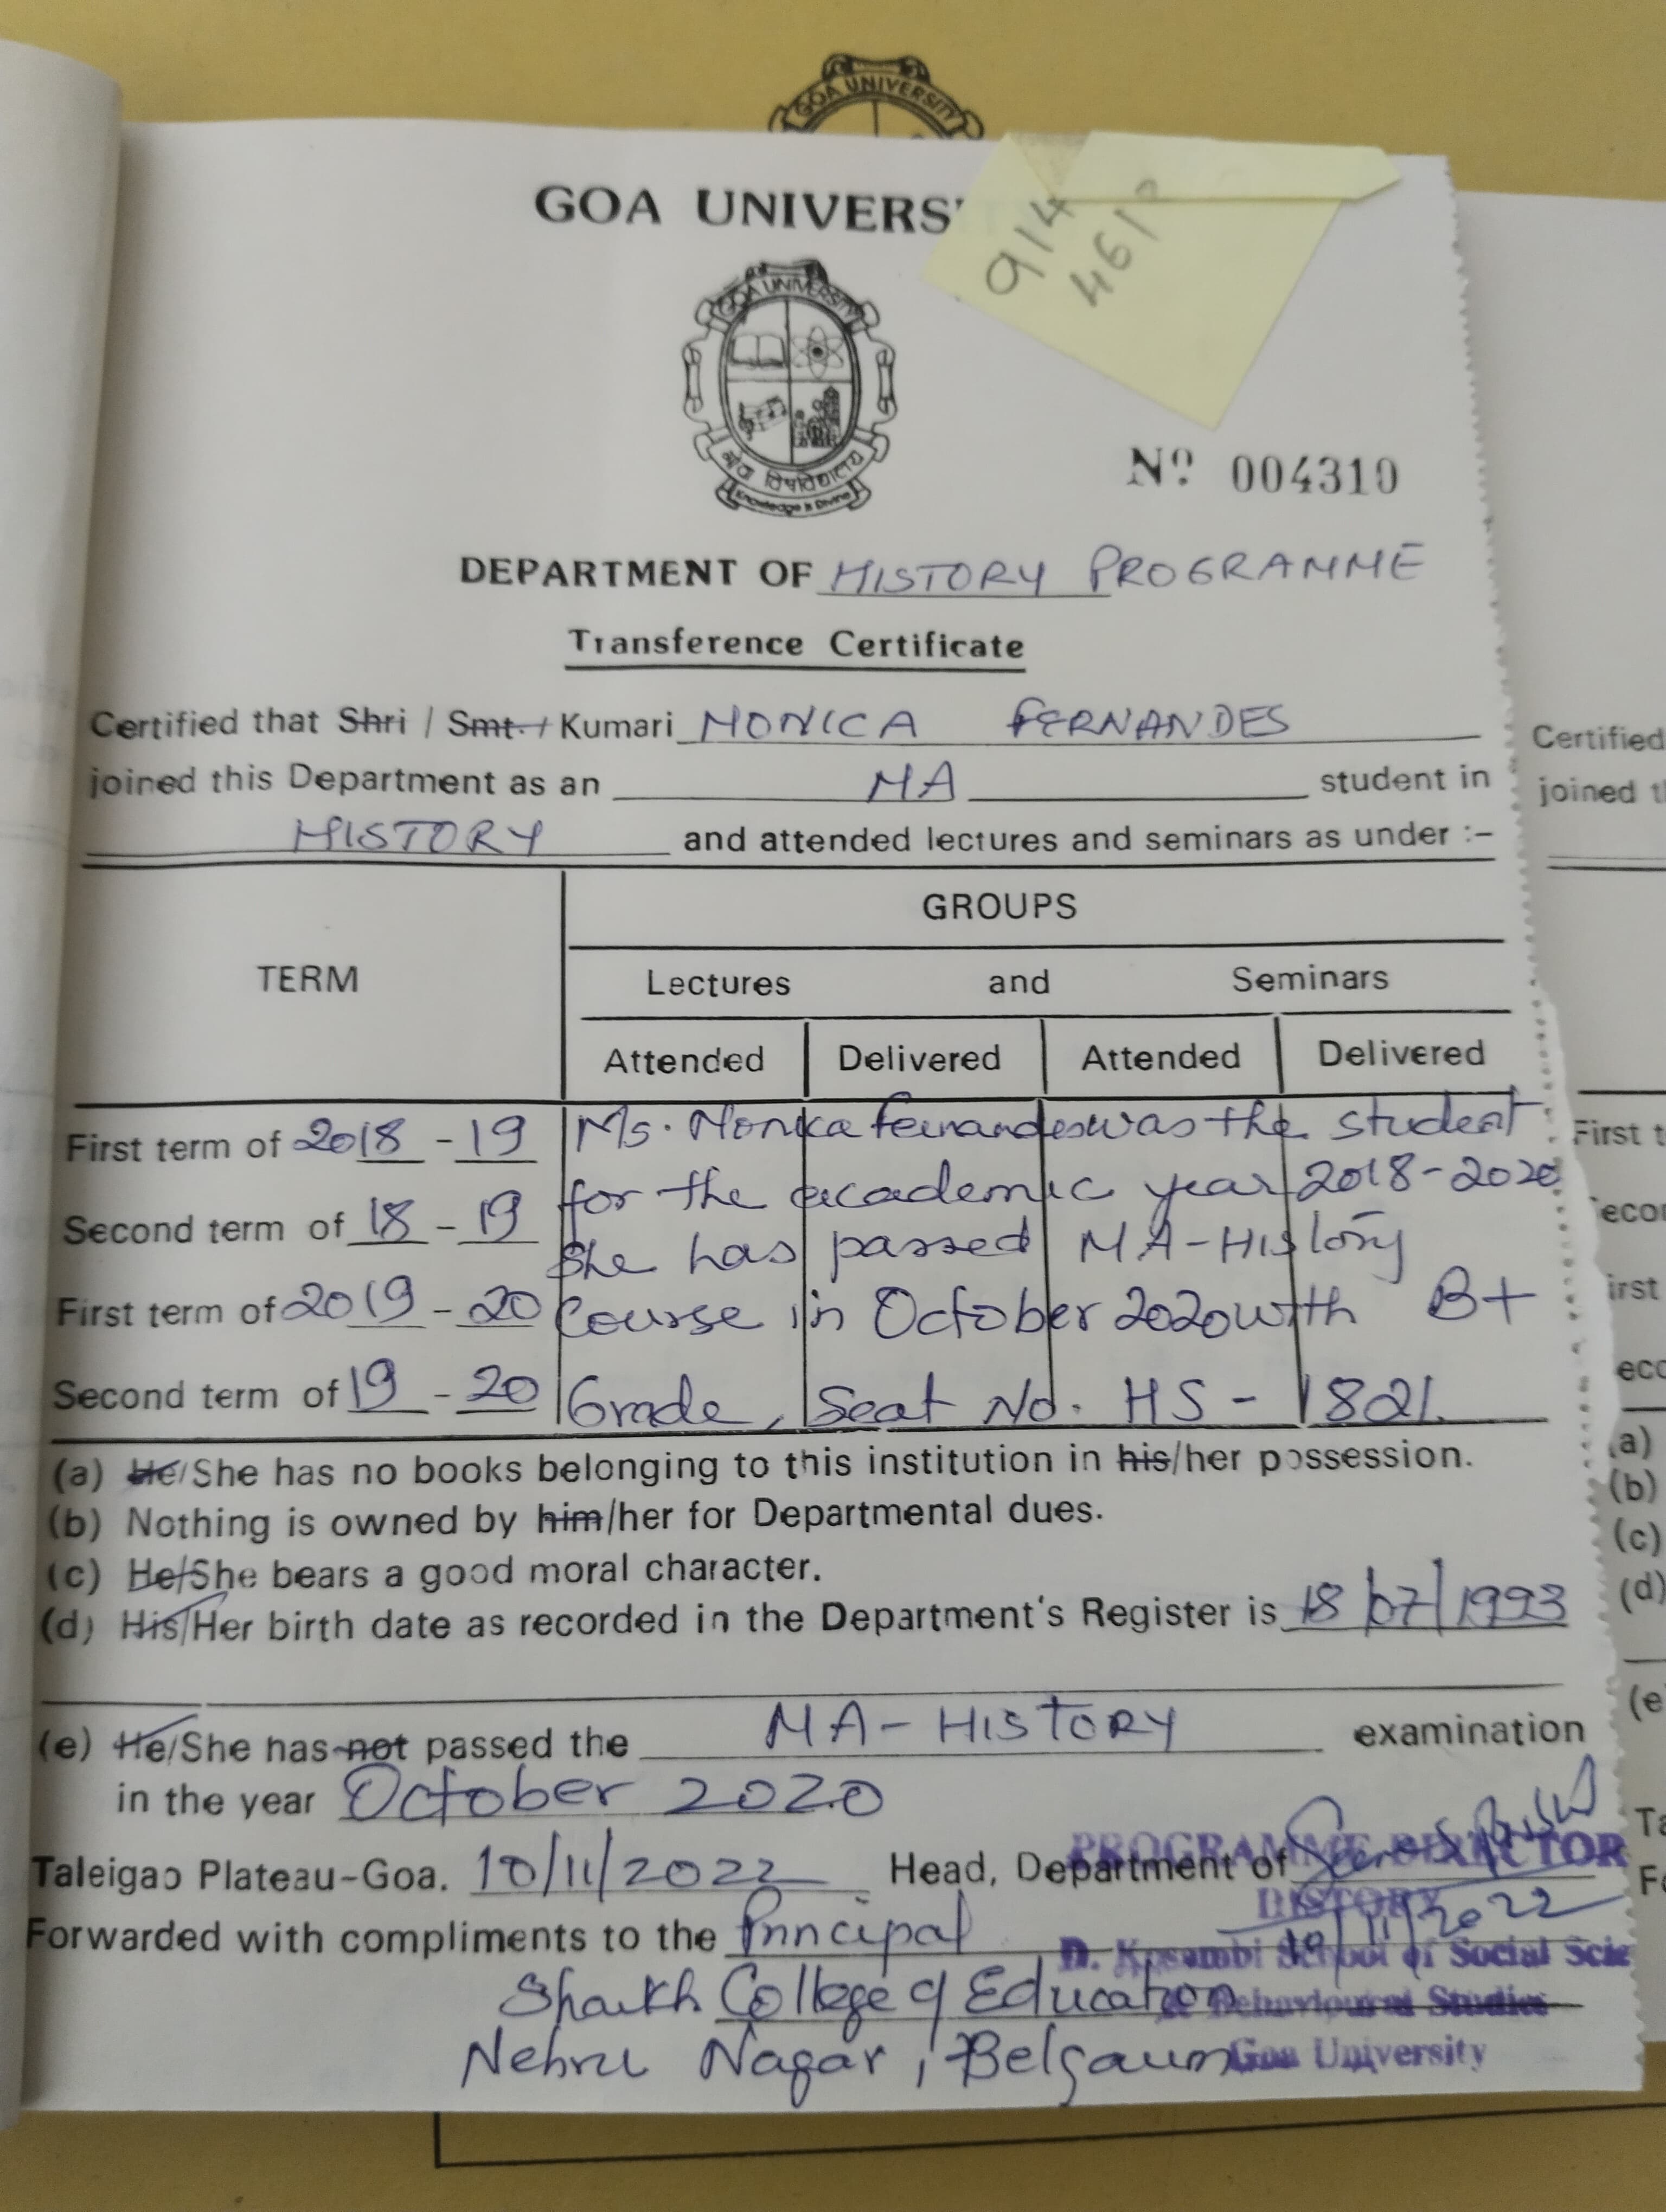 GOA UNIVERSITY
GOA UNIVERS
914
461
GOA UNIVERSITY
गोंय विद्यापीठ
Knowledge is Divine
Nº 004310
DEPARTMENT OF HISTORY PROGRAMME
Transference Certificate
Certified that Shri / Smt. / Kumari MONICA FERNANDES
joined this Department as an MA student in
HISTORY and attended lectures and seminars as under :–
TERM GROUPS
Lectures and Seminars
Attended Delivered Attended Delivered
First term of 2018 - 19 Ms. Monica Fernandes was the student
Second term of 18 - 19 for the academic year 2018-2020
She has passed MA-History
First term of 2019 - 20 Course in October 2020 with B+
Second term of 19 - 20 Grade, Seat No. HS - 1821.
(a) He/She has no books belonging to this institution in his/her possession.
(b) Nothing is owned by him/her for Departmental dues.
(c) He/She bears a good moral character.
(d) His/Her birth date as recorded in the Department's Register is 18/07/1993
(e) He/She has not passed the MA-HISTORY examination
in the year October 2020
Taleigao Plateau-Goa. 10/11/2022 Head, Department of
PROGRAMME DIRECTOR
HISTORY
10/11/2022
Forwarded with compliments to the Principal
D. Kosambi School of Social Scie
Shaikh College of Education
& Behavioural Studies
Nehru Nagar, Belgaum
Goa University
Certified
joined t
First t
econ
irst
ecc
(a)
(b)
(c)
(d)
(e
Ta
Fo